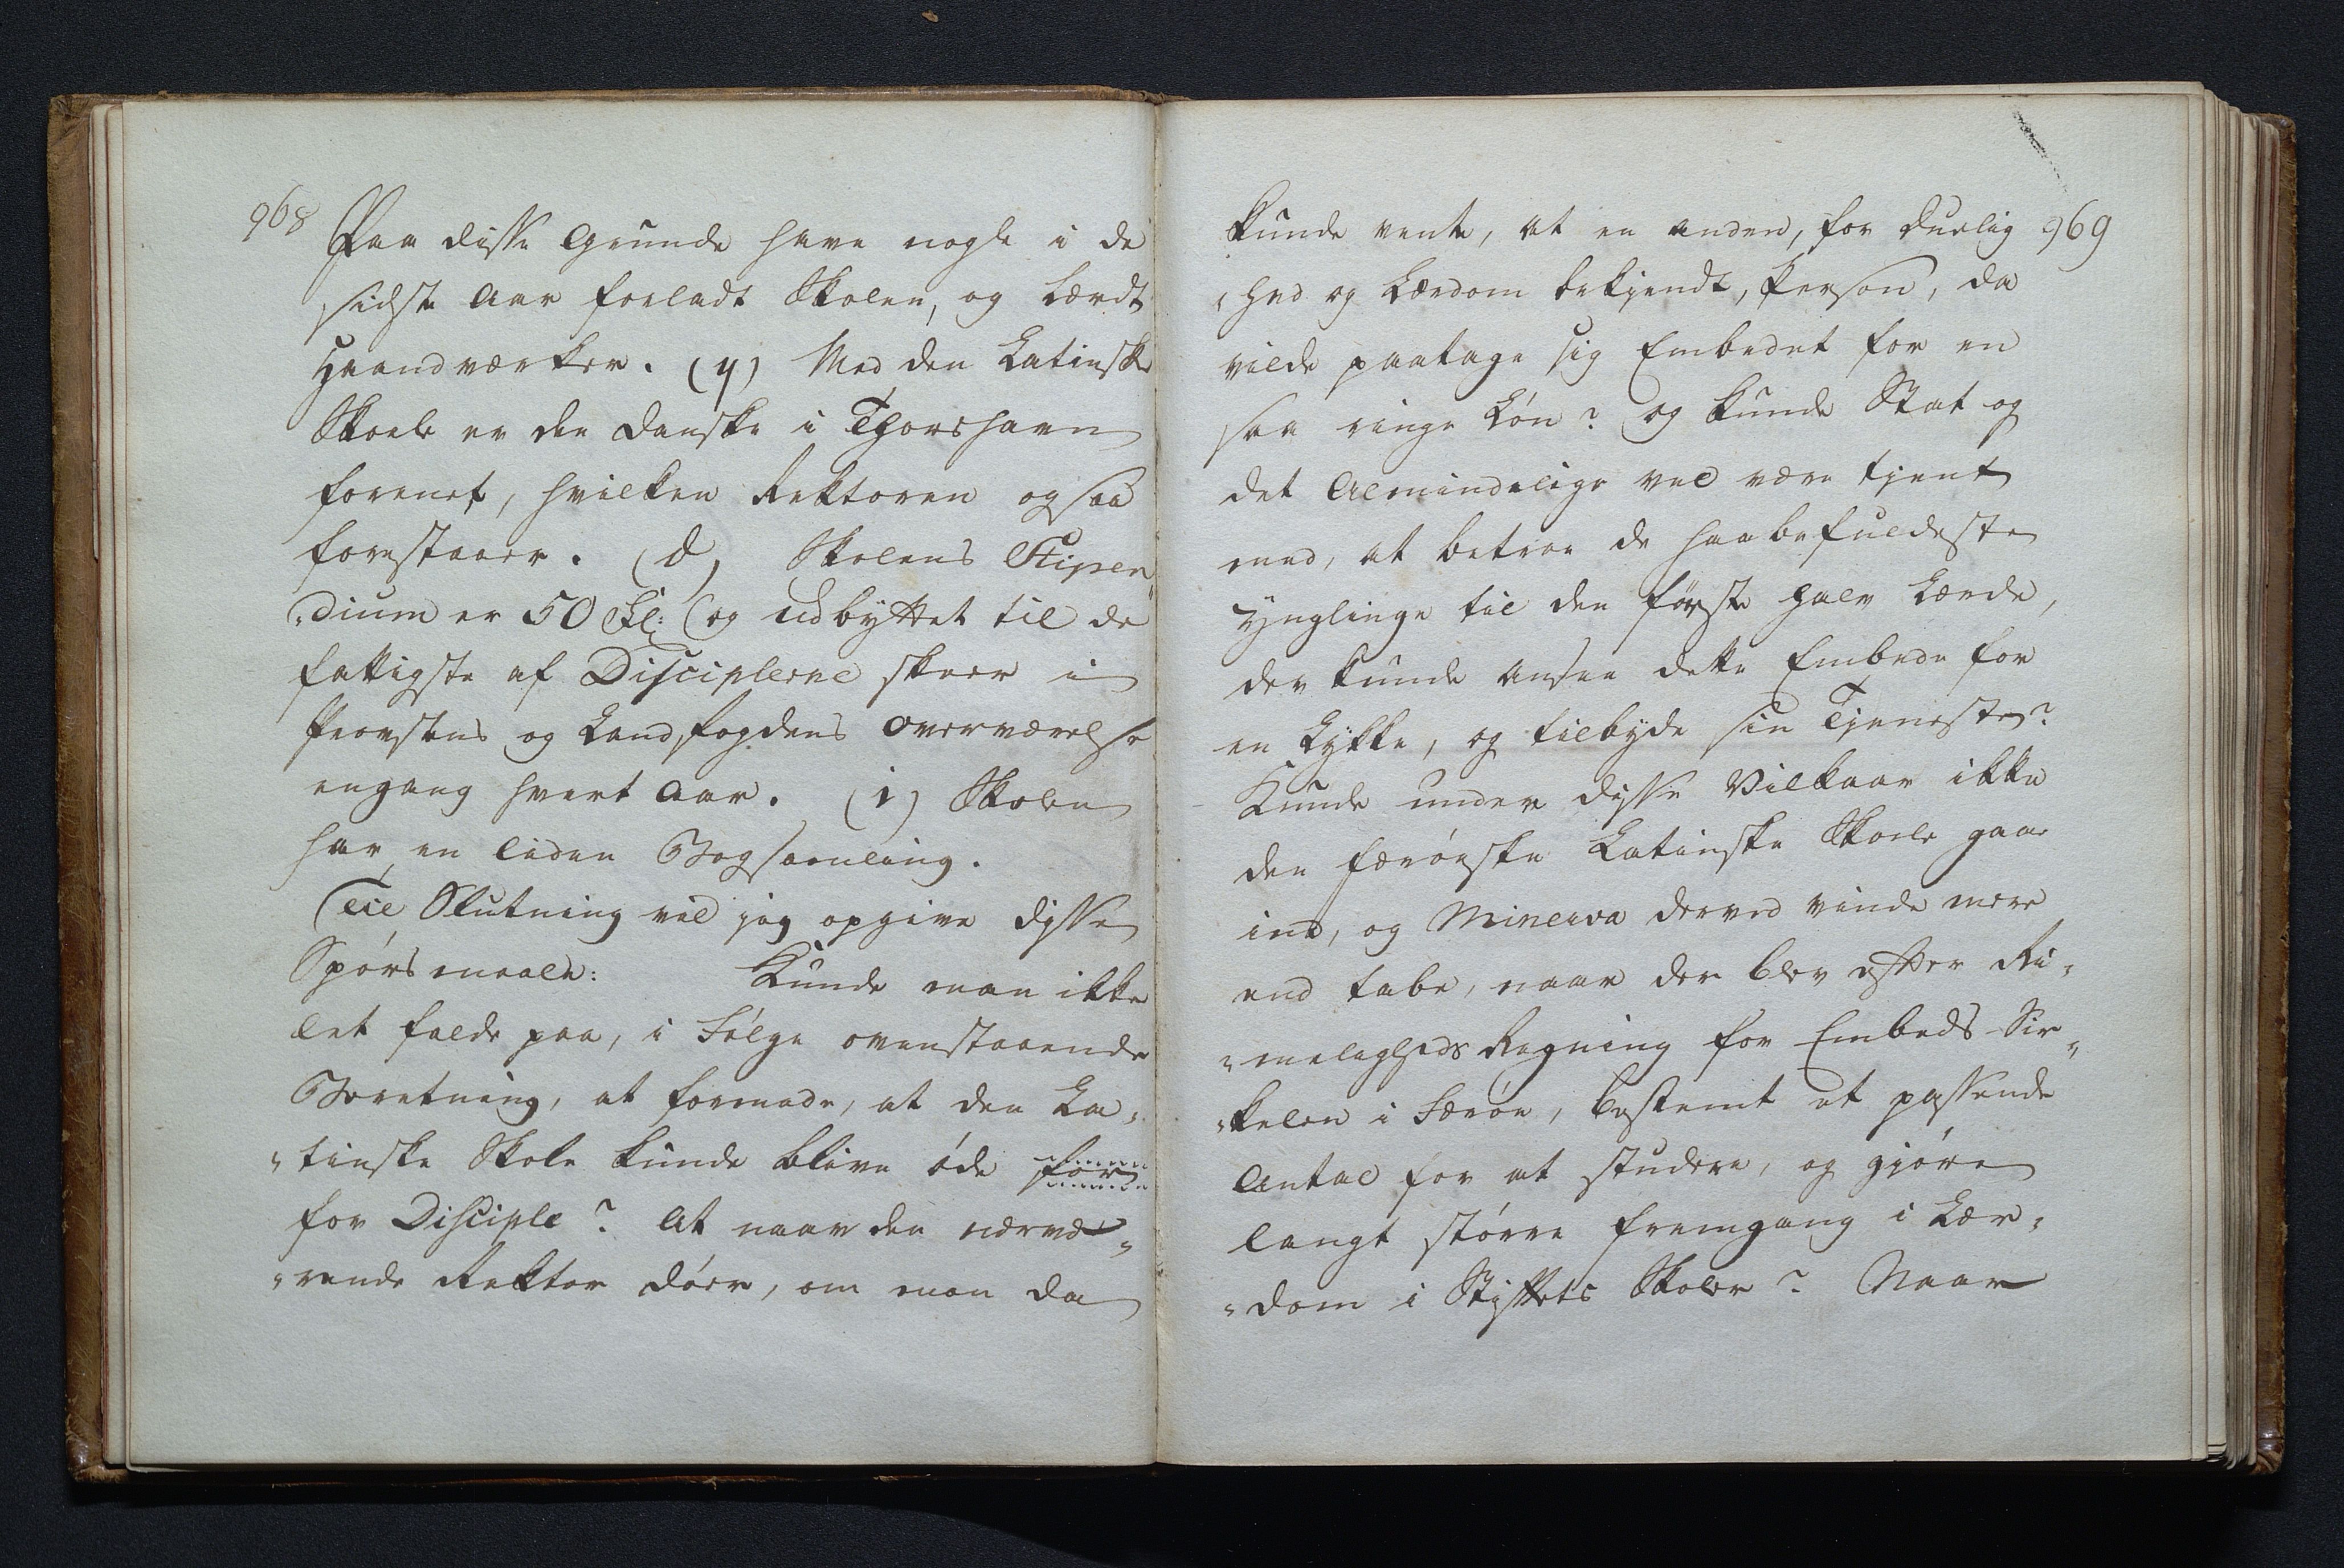 968
Paa disse Grunde have nogle i de
sidste Aar forladt Skolen, og lærdt
Haandværker. (y) Med den Latinske
Skoele er den Danske i Thorshavn
forenet, hvilken Rektoren ogsaa
forestaaer. (d) Skolens Stipen„
„dium er 50 Gl: og udbyttet til de
fattigste af Disciplerne skeer i
Provstens og Landfogdens Overværelse
engang hvert Aar. (i) Skolen
har en liden Bogsamling.
Til Slutning vil jeg opgive disse
Spörsmaale: Kunde man ikke
let falde paa, i Fölge ovenstaaende
Beretning, at formode, at den La„
„tinske Skole kunde blive öde for
for Disciple? At naar den nærvæ„
„rende Rektor döer, om man da
969
kunde vente, at en anden, for Duelig
„hed og Lærdom bekjendt, Person, da
vilde paatage sig Embedet for en
saa ringe Lön? og kunde Stat og
det Almindelige vel være tjent
med, at betroe de haabefuldeste
Ynglinge til den förste halv Lærde,
der kunde ansee dette Embede for
en Lykke, og tilbyde sin Tjeneste?
Kunde under disse Vilkaar ikke
den færöeske Latinske Skoele gaae
ind, og Minerva derved vinde mere
end tabe, naar der blev efter Ri„
„meligheds Regning for Embeds-Sir„
„kelen i Færöe, bestemt et passende
Antal for at studere, og gjöre
langt större Fremgang i Lær„
„dom i Stiftets Skoler? Naar